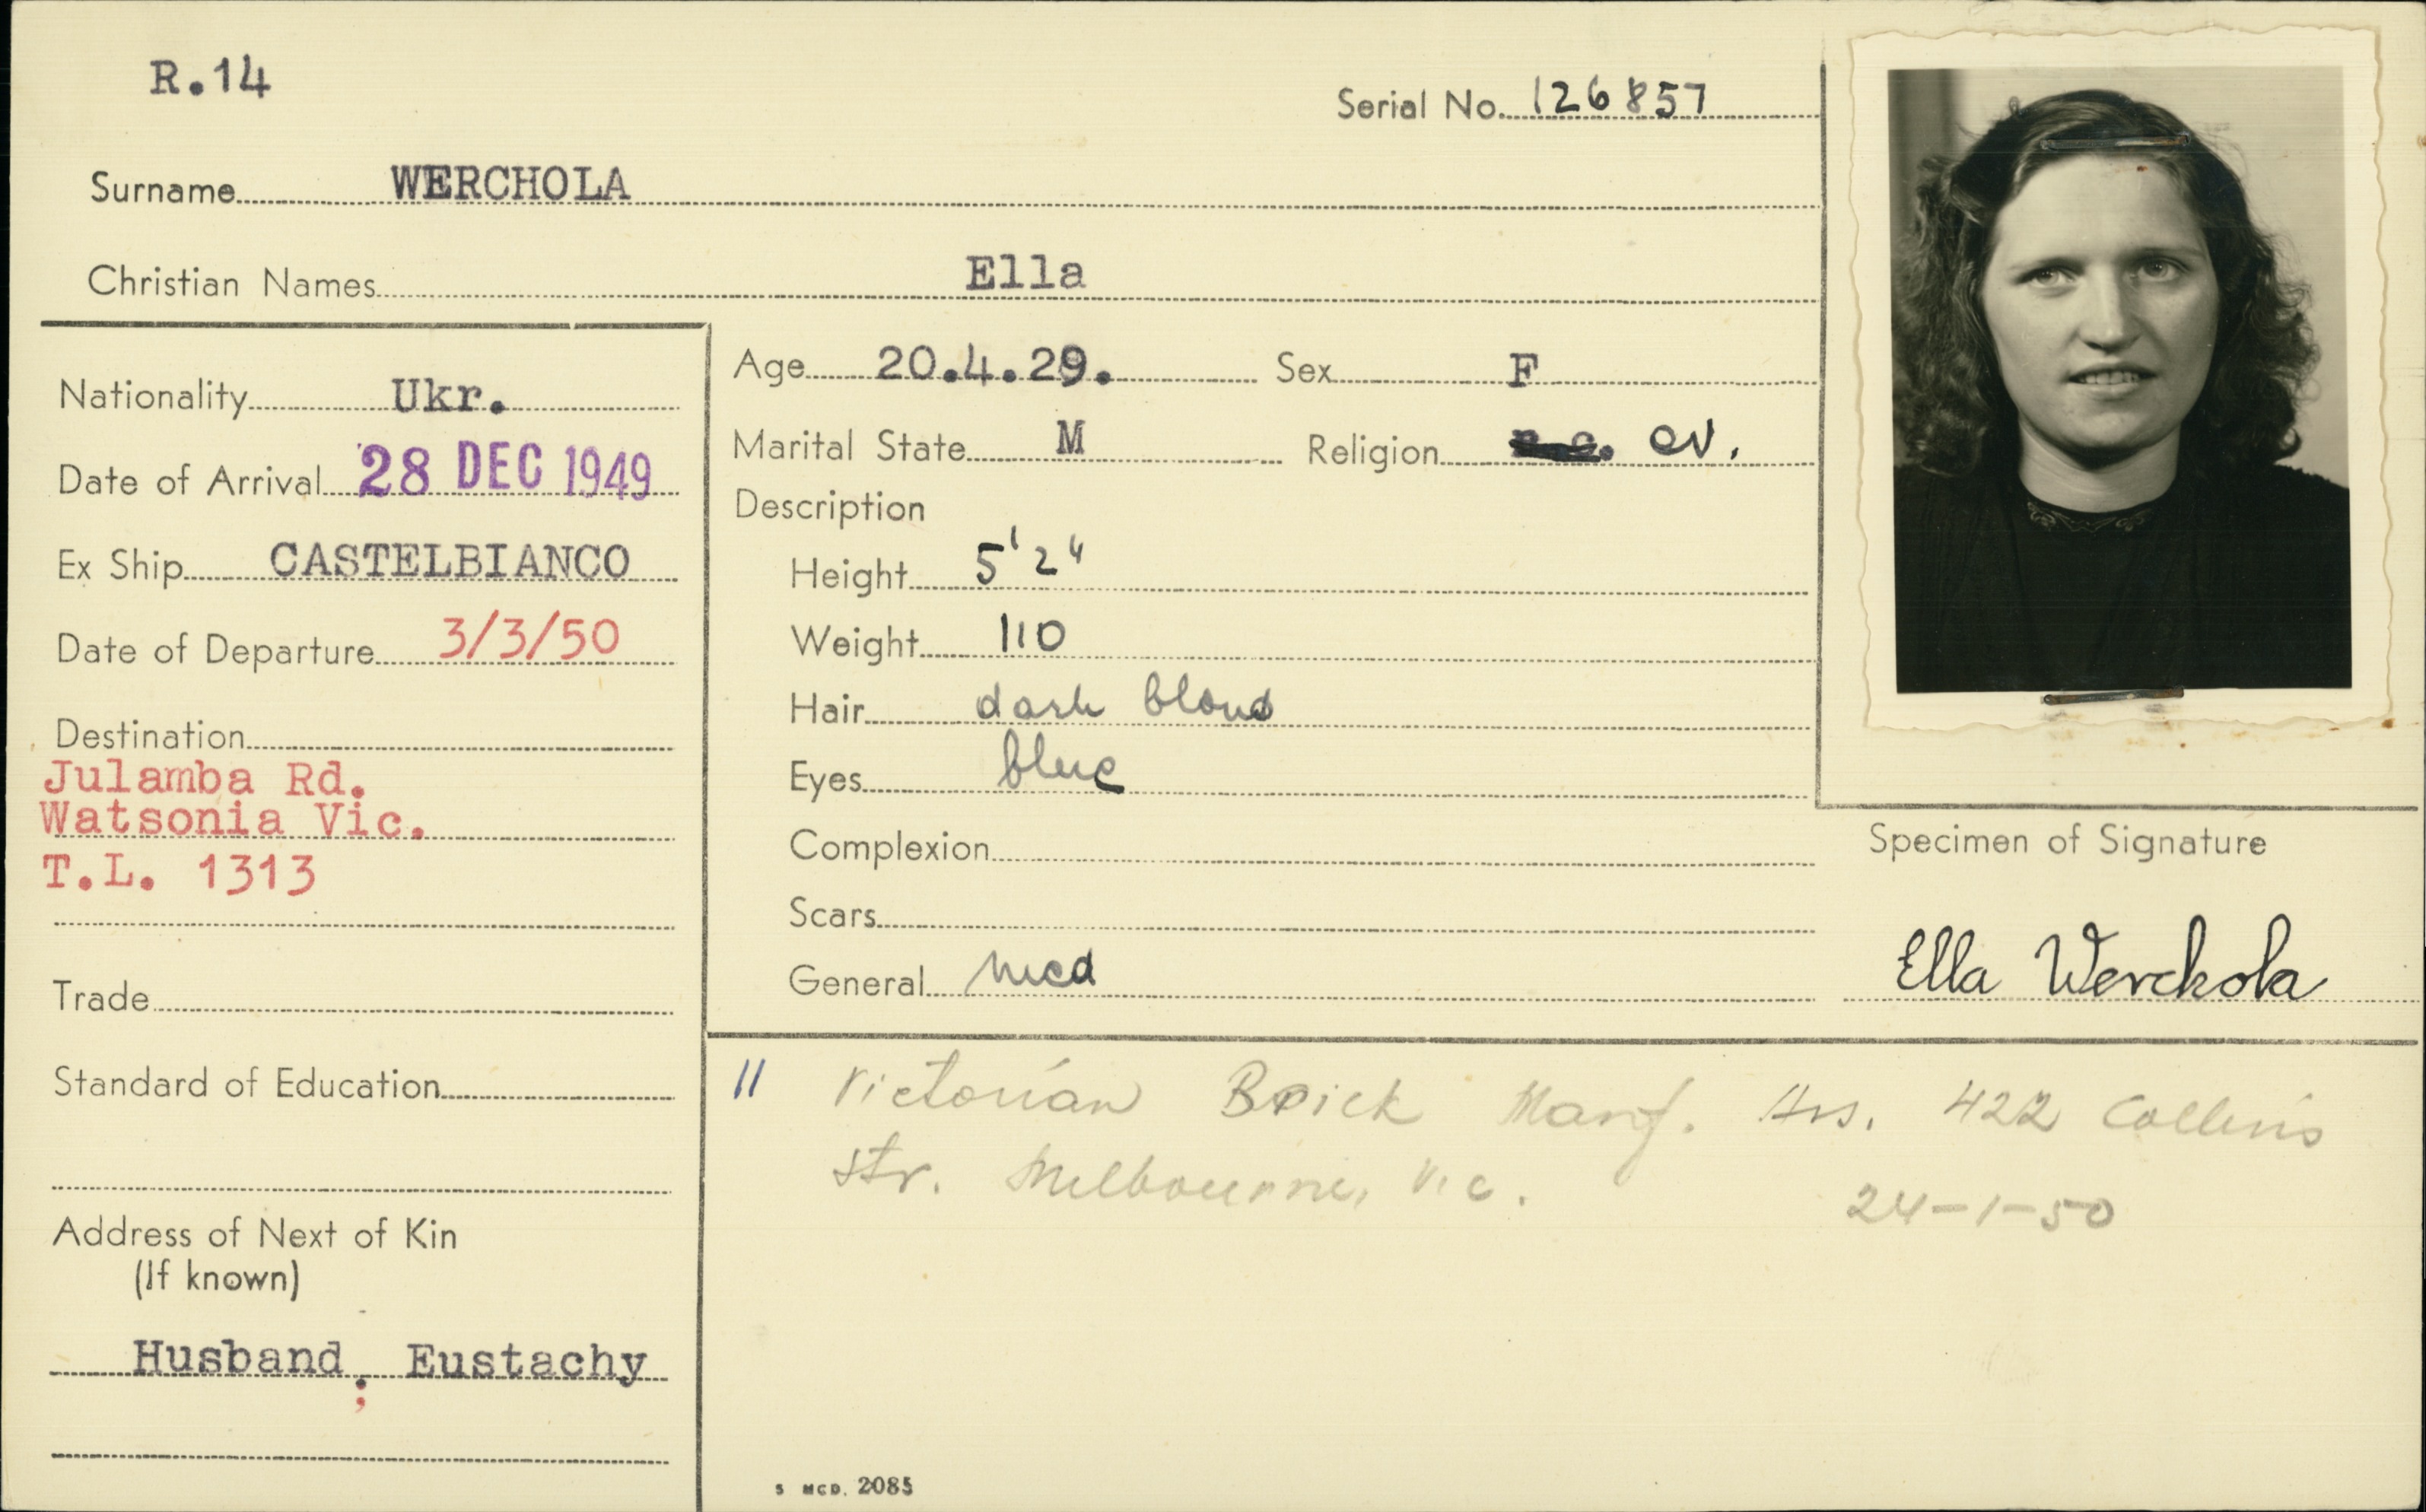 R.14
Serial No. 126857
Surname WERCHOLA
Christian Names Ella
Nationality Ukr.
Date of Arrival 28 DEC 1949
Ex Ship CASTELBIANCO
Date of Departure 3/3/50
Destination
Julamba Rd.
Watsonia Vic.
T.L. 1313
Trade
Standard of Education
Address of Next of Kin
(If known)
Husband ; Eustachy
Age 20.4.29. Sex F
Marital State M Religion ev.
Description
Height 5'2"
Weight 110
Hair dark blond
Eyes blue
Complexion
Scars
General med
Specimen of Signature
Ella Werchola
11 Victorian Brick Manf. 422 Collins
Str. Melbourne, Vic.
24-1-50
S MCD. 2085